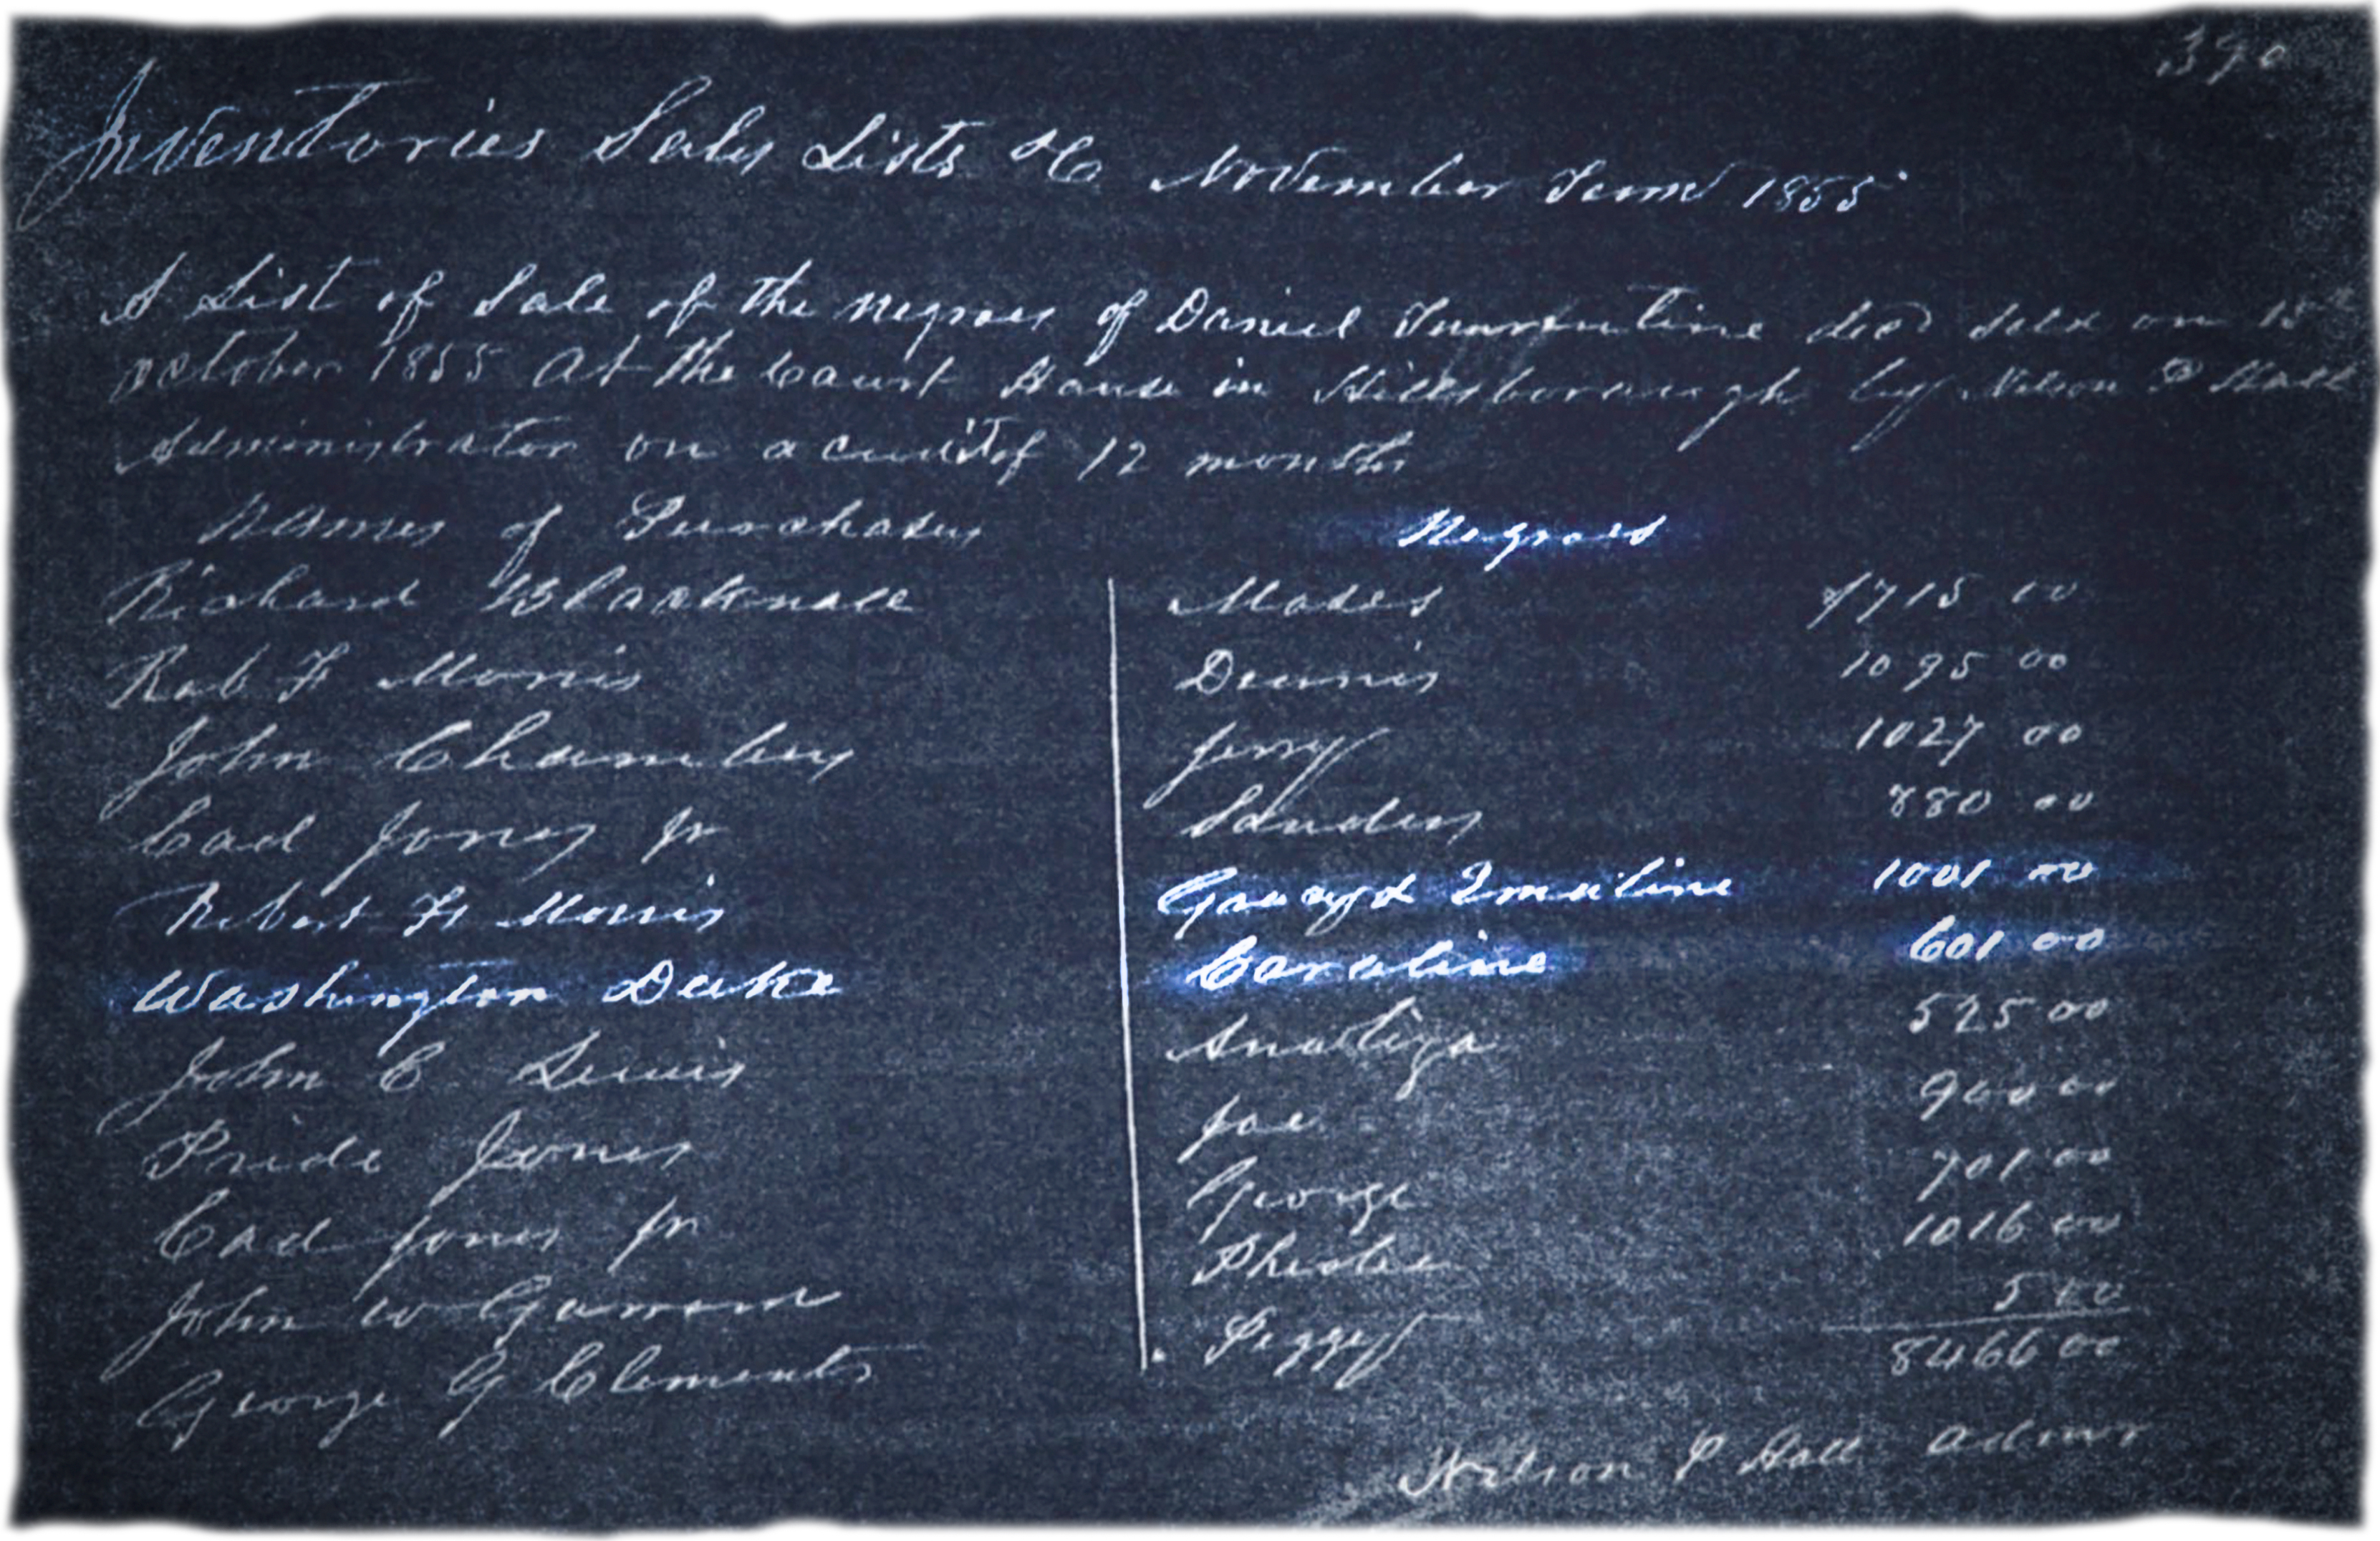 390
Inventories Sales Lists &C November Term 1855
A List of Sale of the negroes of Daniel Turrentine decd sold on 15th
October 1855 At the Court House in Hillsborough by Nelson P Hall
Administrator on a credit of 12 months
Names of Purchasers Negroes
Richard Blacknall Moses $715 00
Rob F Morris Dennis 1095 00
John Chambers Jerry 1027 00
Cad Jones Jr Sanders 880 00
Robert F Morris Gracy & Emeline 1001 00
Washington Duke Caroline 601 00
John C Lewis 525 00
Pride Jones Joe 900 00
Cad Jones Jr George 701 00
John W 1016 00
George G Clements Peggy 5 00
8466 00
Nelson P Hall Admr